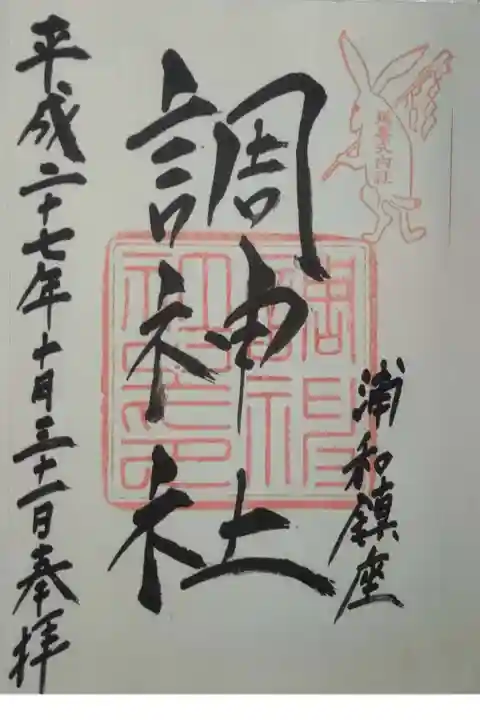 延喜式内社
浦和鎮座
調神社
平成二十七年十月三十一日奉拝
調神社之印